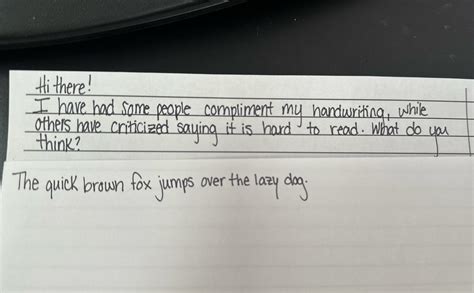 Hi there!
I have had some people compliment my handwriting, while
others have criticized saying it is hard to read. What do you
think?
The quick brown fox jumps over the lazy dog.